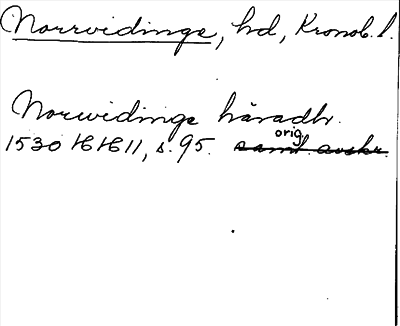 Norrvidinge, hd, Kronob. l.
Norwidinge häradh.
1530 HH 11, s. 95. orig. samt. avskr.